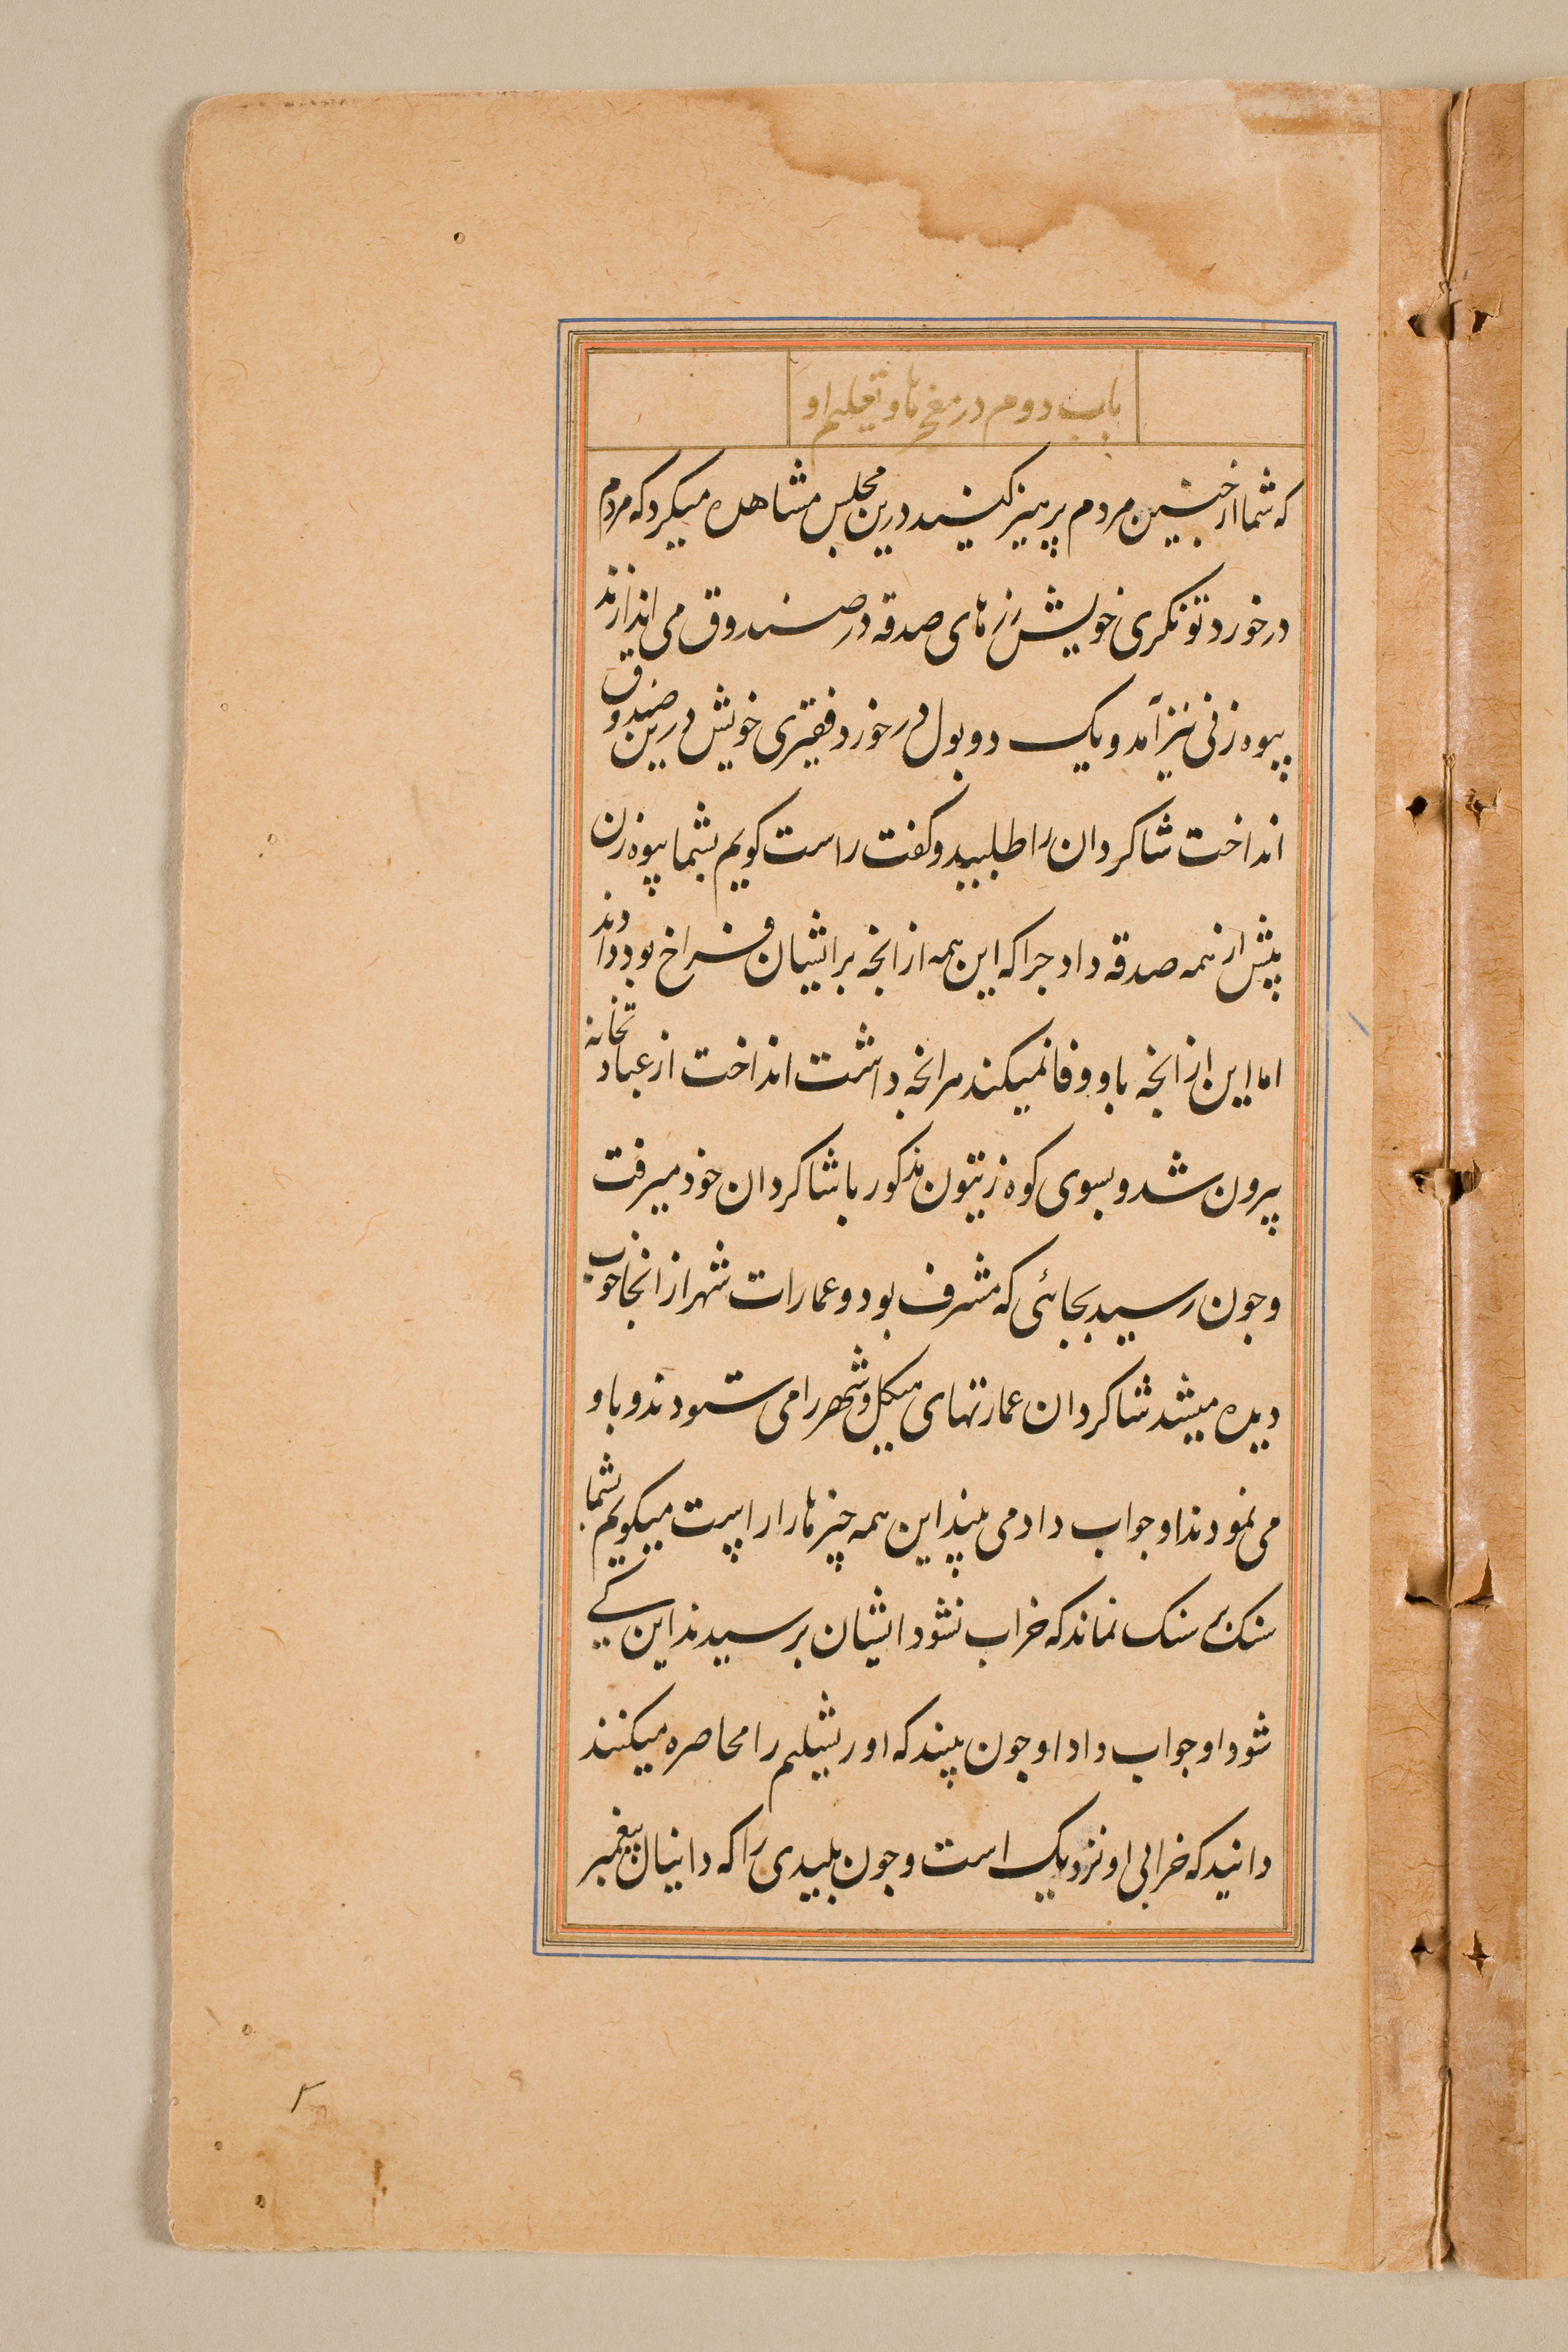 باب دوم در معجزها و تعلیم او
که شما از چنین مردم پرهیز کنید درین مجلس مشاهده میکرد که مردم
در خورد تونکری خویش زرهای صدقه در صندوق می اندازند
بیوه زنی نیز آمد و یک دو پول در خورد فقیری خویش درین صندوق
انداخت شاکردان را طلبید و کفت راست کویم بشما بیوه زن
بیش از همه صدقه داد جرا که این همه از انجه بر ایشان فراخ بود دادند
اما این از انجه باو وفا نمیکند هر انجه داشت انداخت از عبادتخانه
بیرون شد و بسوی کوه زیتون مذکور با شاکردان خود میرفت
و جون رسید بجائی که مشرف بود و عمارات شهر از انجا خوب
دیده میشد شاکردان عمارتهای هیکل و شهر را می ستودند و باو
می نمودند او جواب داد می بینید این همه چیزها را راست میکویم بشما
سنک بر سنک نماند که خراب نشود ایشان پرسیدند این کی
شود او جواب داد او جون بینند که اورشیلیم را محاصره میکنند
دانید که خرابی او نزدیک است و جون پلیدی را که دانیال پیغمبر